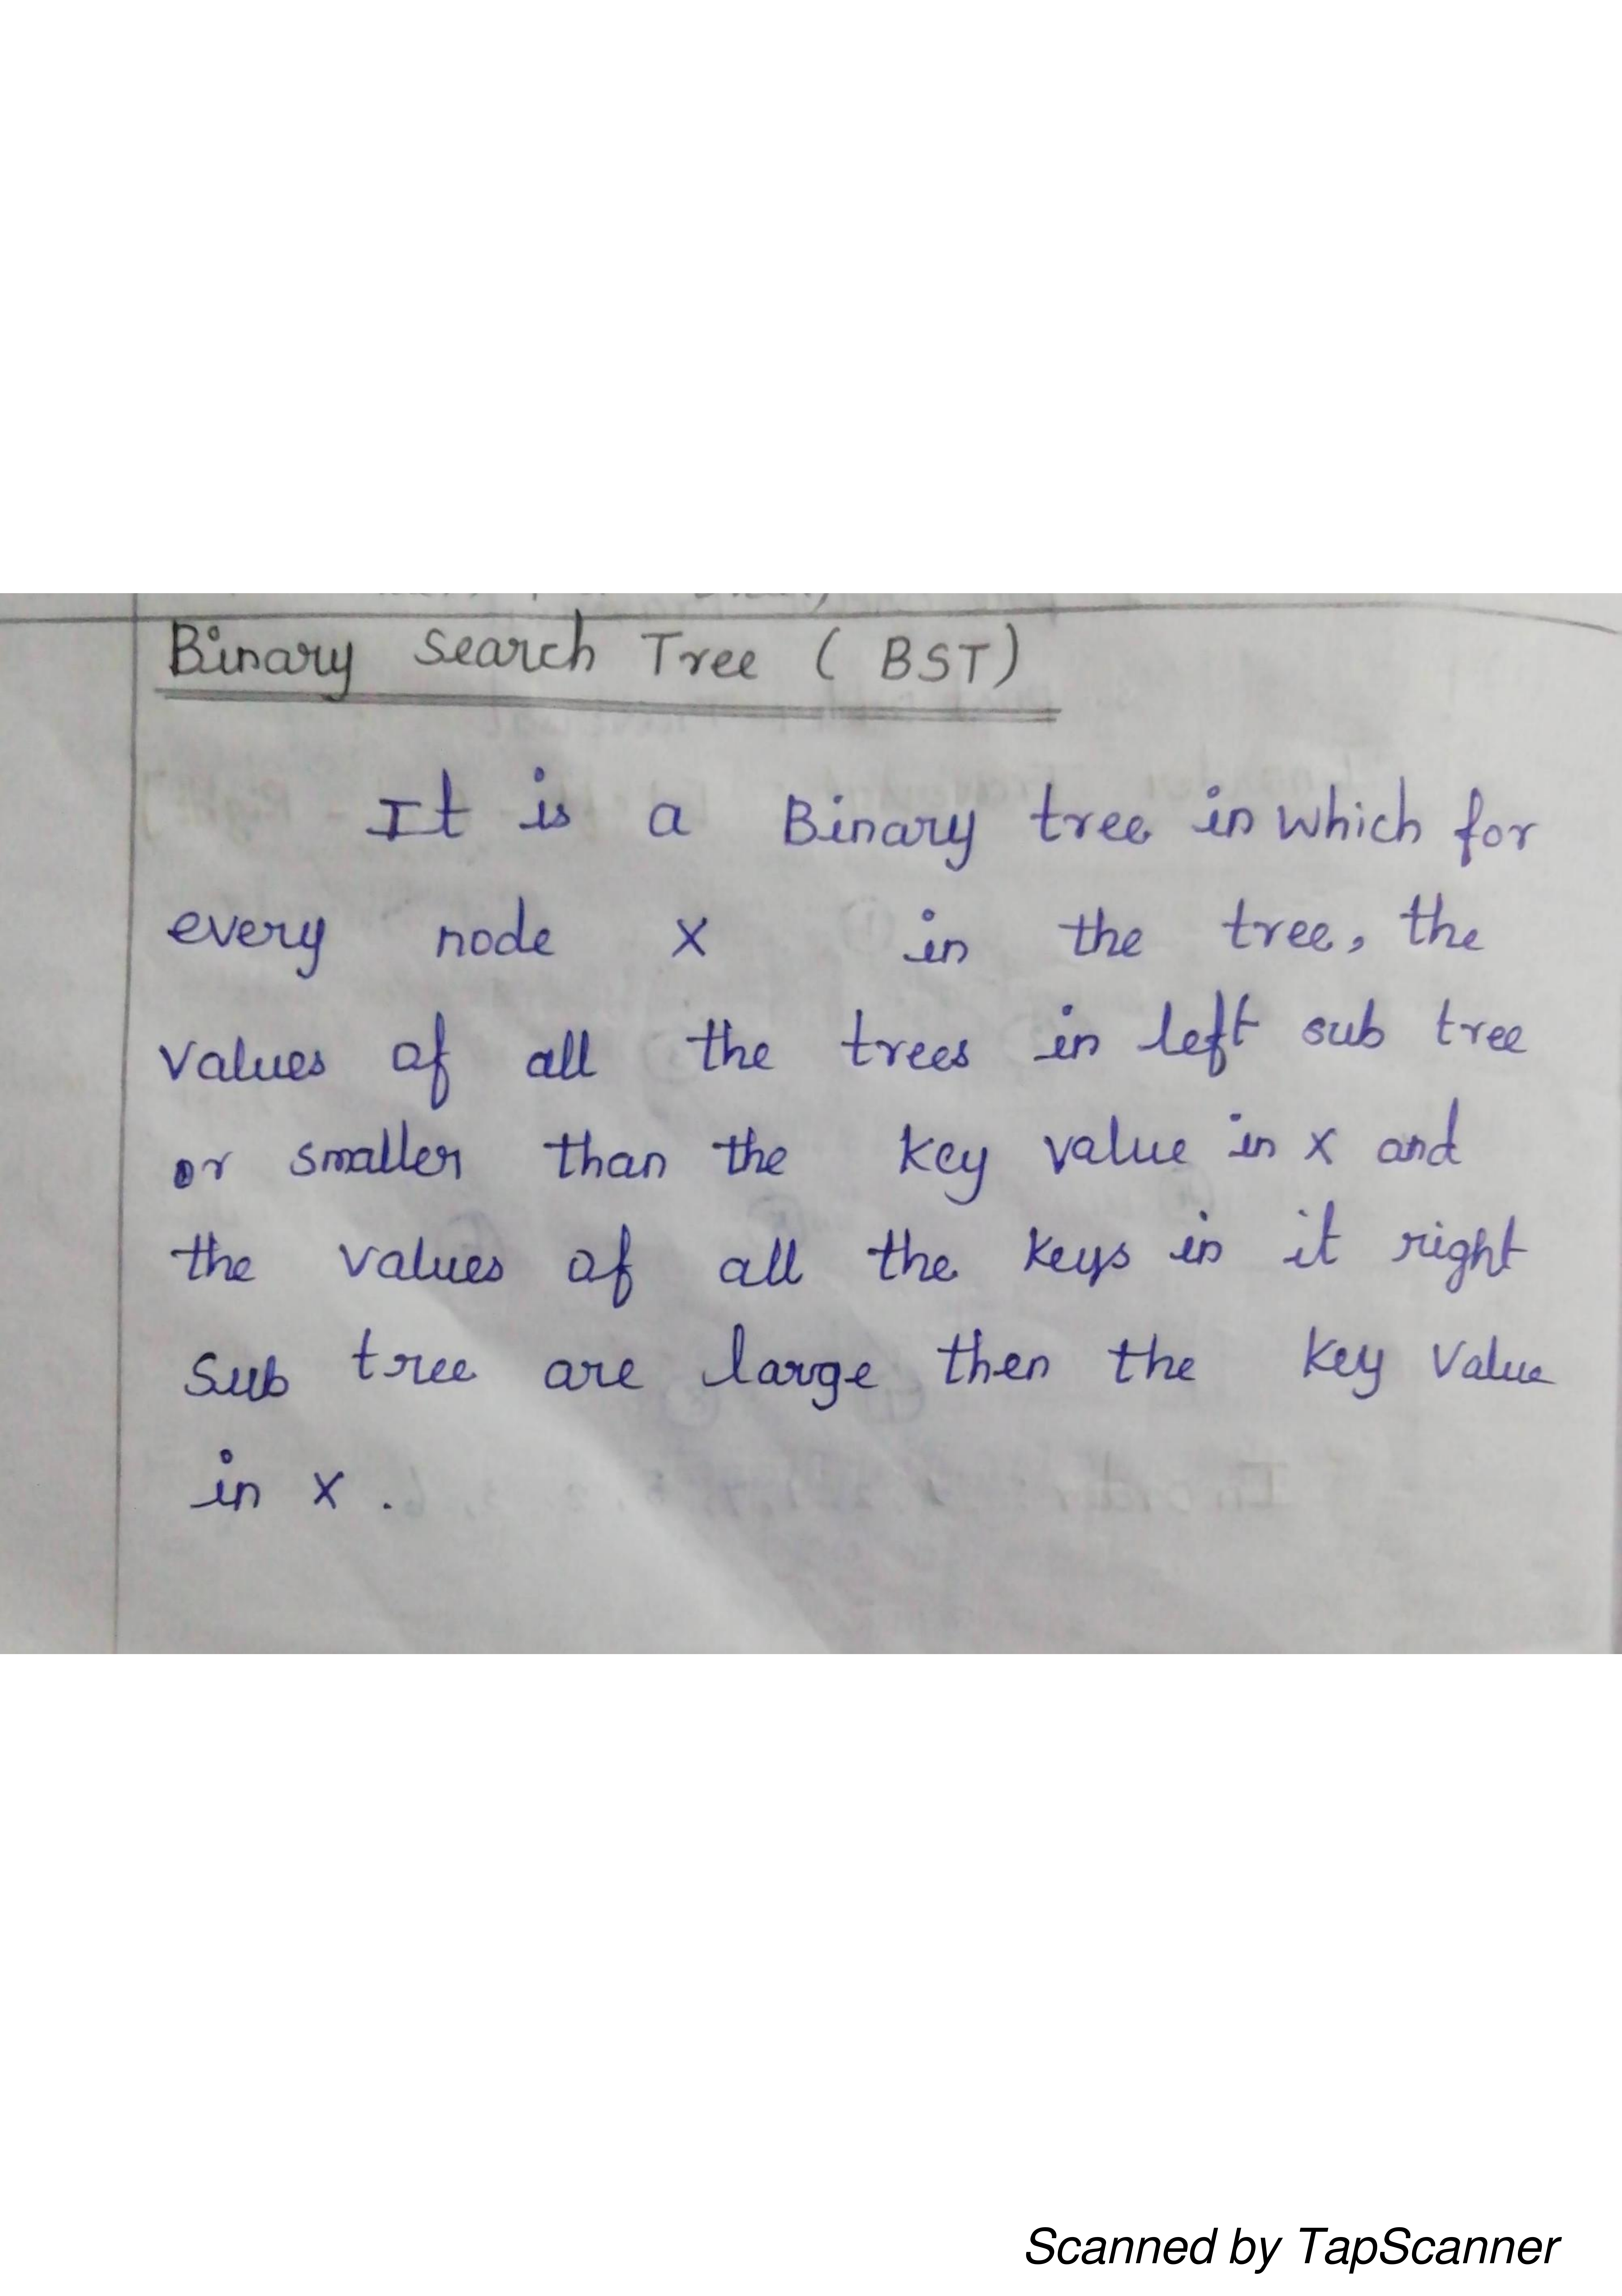 Binary Search Tree ( BST )
It is a Binary tree in which for
every node x in the tree, the
values of all the trees in left sub tree
or smaller than the key value in x and
the values of all the keys in it right
sub tree are large then the key value
in x .
Scanned by TapScanner